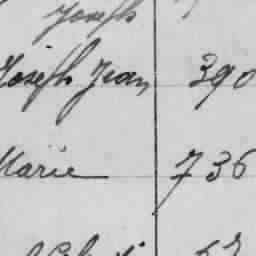 Joseph
Joseph Jean 390
Marie 736